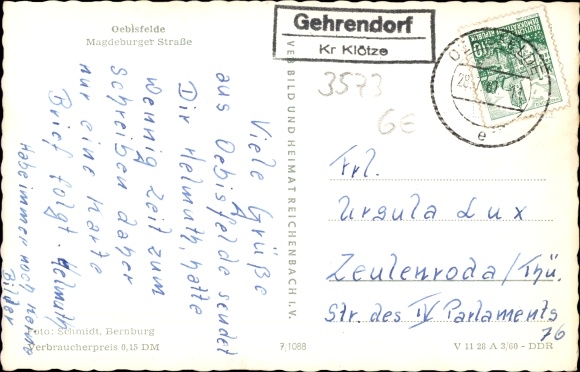 Oebisfelde
Magdeburger Straße
Gehrendorf
Kr Klötze
3573
GE
28.
e
VEB BILD UND HEIMAT REICHENBACH i. V.
Viele Grüße
aus Oebisfelde sendet
Dir Helmuth, hatte
wennig Zeit zum
schreiben daher
nur eine Karte
Brief folgt. Helmuth
Habe immer noch keine
Bilder
Frl.
Ursula Lux
Zeulenroda/Thü.
Str. des IV Parlaments
76
Foto: Schmidt, Bernburg
Verbraucherpreis 0,15 DM
7,1088
V 11 28 A 3/60 - DDR